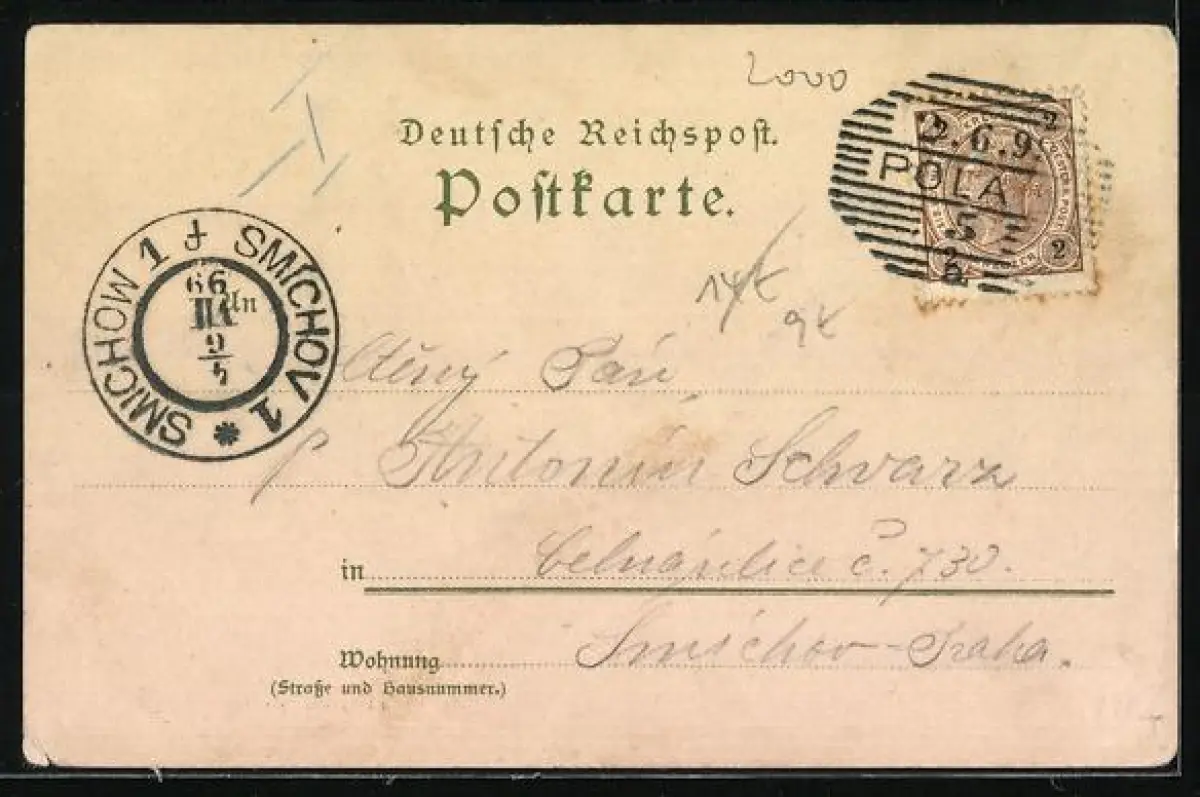 2000
Deutsche Reichspost.
Postkarte.
2 2
2.6.9.
POLA
5
2
2
SMICHOV 1 * SMICHOW 1
99
III
9
4
An
9x
Ctěný Pán
p Antonín Schvarz
in Celná ulice č. 730.
Wohnung Smíchov-Praha.
(Straße und Hausnummer.)